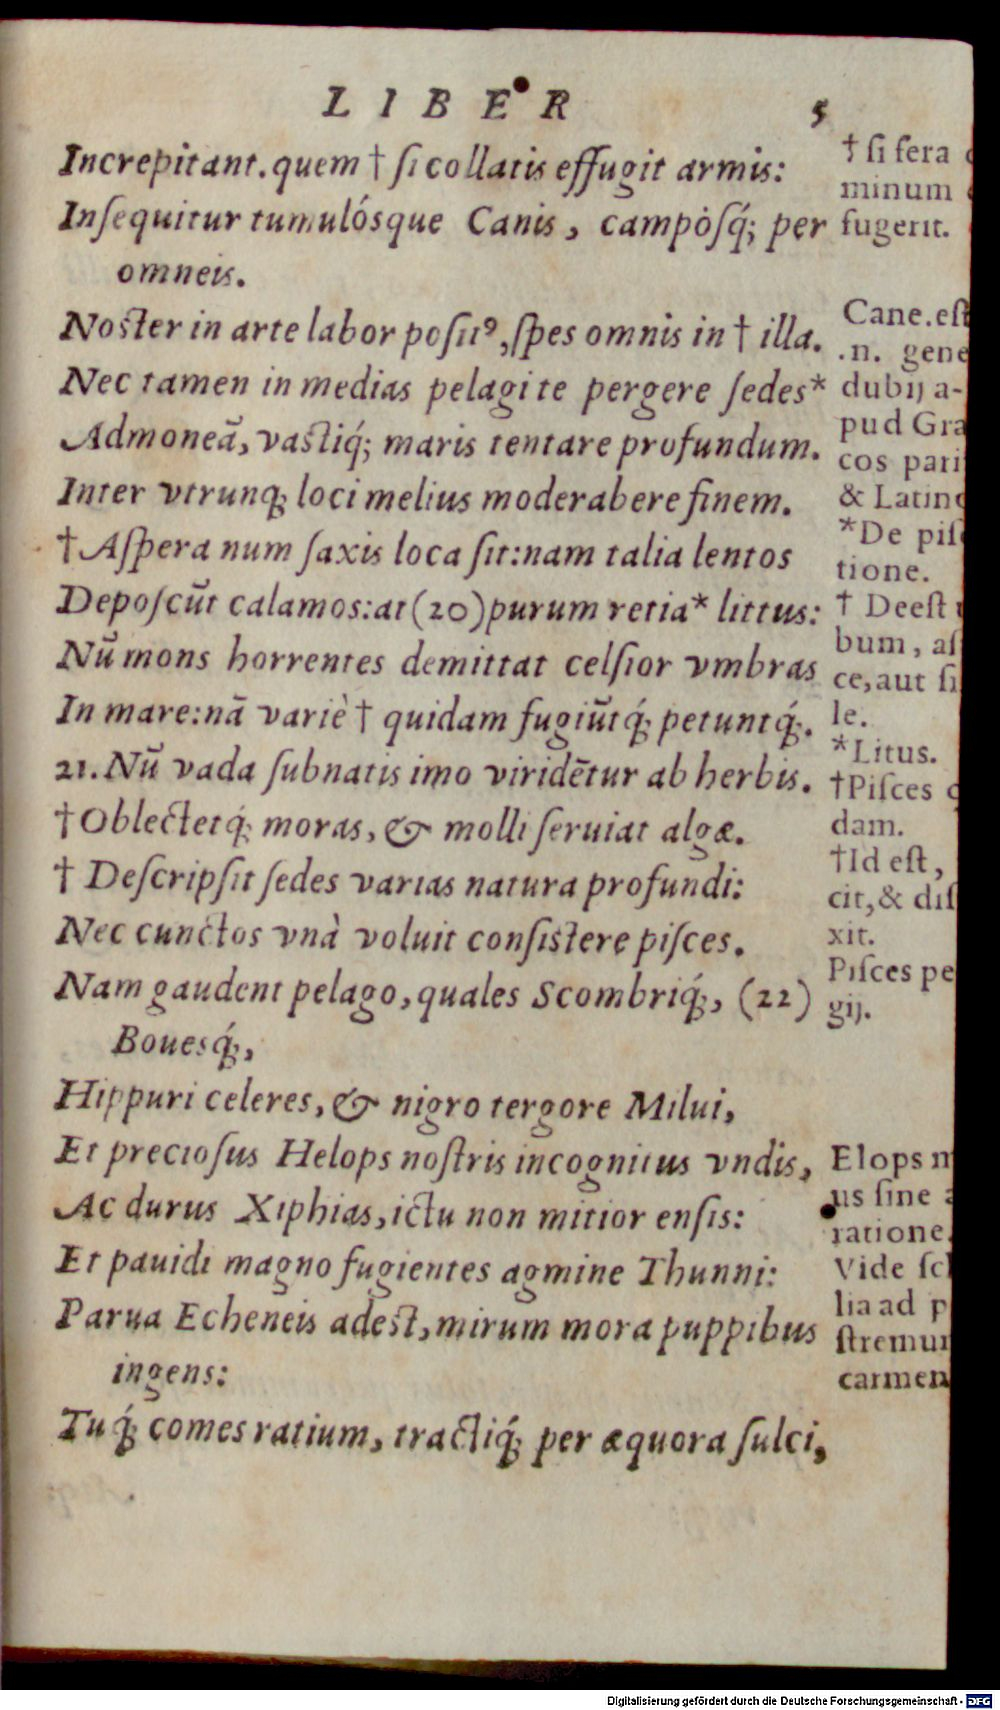 LIBER 5
Increpitant. quem † ſi collatis effugit armis:
Inſequitur tumulósque Canis, campòſq́; per
omneis.
Noſter in arte labor poſitꝰ, ſpes omnis in † illa.
Nec tamen in medias pelagi te pergere ſedes*
Admoneã, vaſtiq́; maris tentare profundum.
Inter vtrunq; loci melius moderabere finem.
†Aſpera num ſaxis loca ſit: nam talia lentos
Depoſcũt calamos: at (20) purum retia* littus:
Nũ mons horrentes demittat celſior vmbras
In mare: nã variè † quidam fugiũtq́; petuntq́;.
21. Nũ vada ſubnatis imo viridẽtur ab herbis.
†Oblectetq́; moras, & molli ſeruiat algæ.
† Deſcripſit ſedes varias natura profundi:
Nec cunctos vnà voluit conſiſtere piſces.
Nam gaudent pelago, quales Scombriq́;, (22)
Bouesq́;,
Hippuri celeres, & nigro tergore Milui,
Et precioſus Helops noſtris incognitus vndis,
Ac durus Xiphias, ictu non mitior enſis:
Et pauidi magno fugientes agmine Thunni:
Parua Echeneis adeſt, mirum mora puppibus
ingens:
Tuq́; comes ratium, tractiq́; per æquora ſulci,
† ſi fera
minum
fugerit.
Cane. eſt
.n. gene
dubij a-
pud Græ
cos pari
& Latino
*De piſc
tione.
† Deeſt
bum, aſ
ce, aut ſi
le.
*Litus.
†Piſces q
dam.
†Id eſt,
cit, & diſ
xit.
Piſces pe
gij.
Elops n
us ſine
ratione.
Vide ſch
lia ad p
ſtremum
carmen
Digitalisierung gefördert durch die Deutsche Forschungsgemeinschaft - DFG